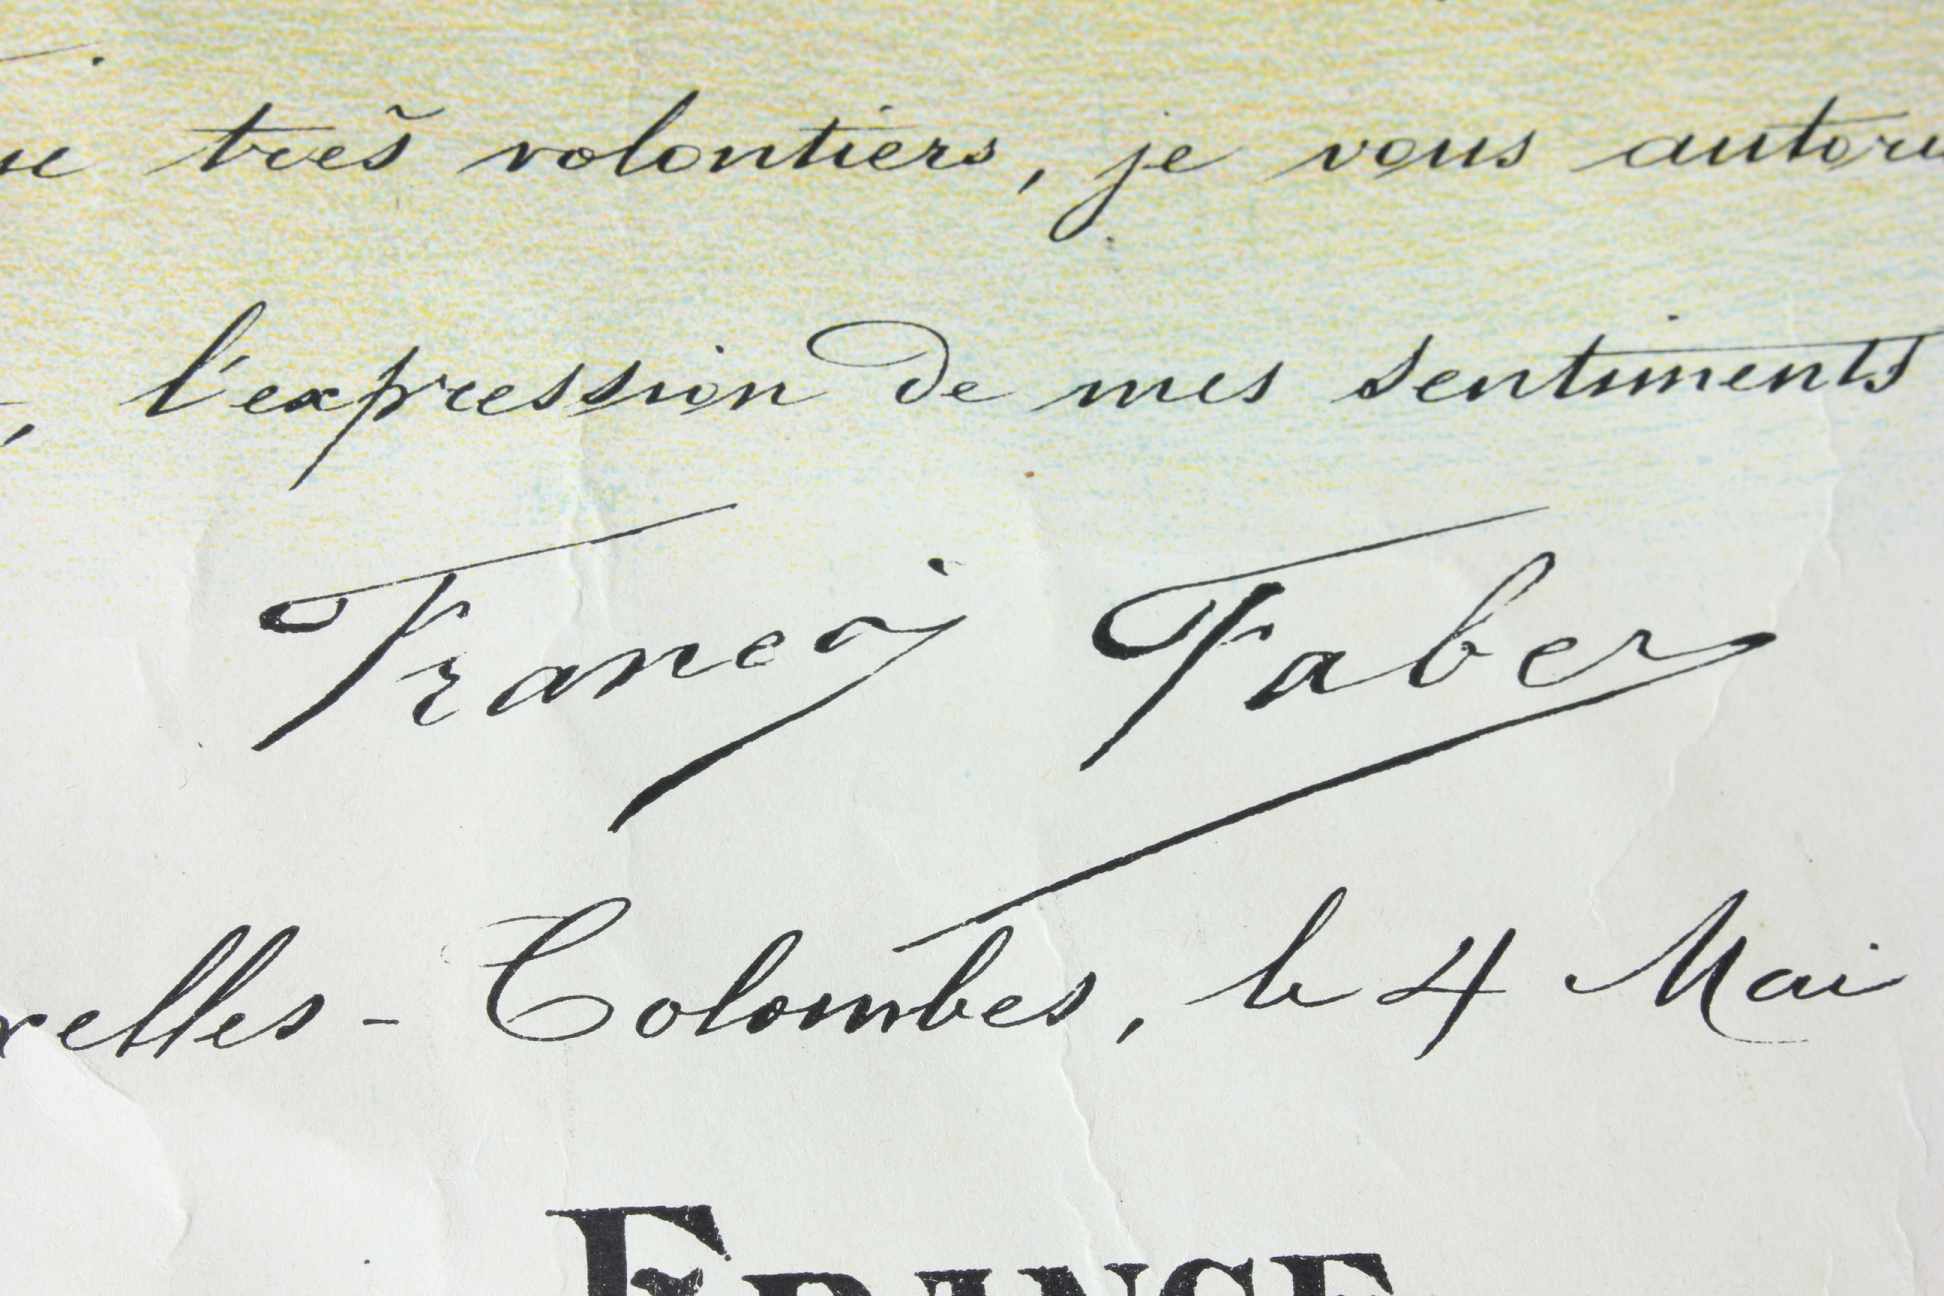 très volontiers, je vous autoris
, l'expression de mes sentiments
François Faber
relles - Colombes, le 4 Mai
FRANCE